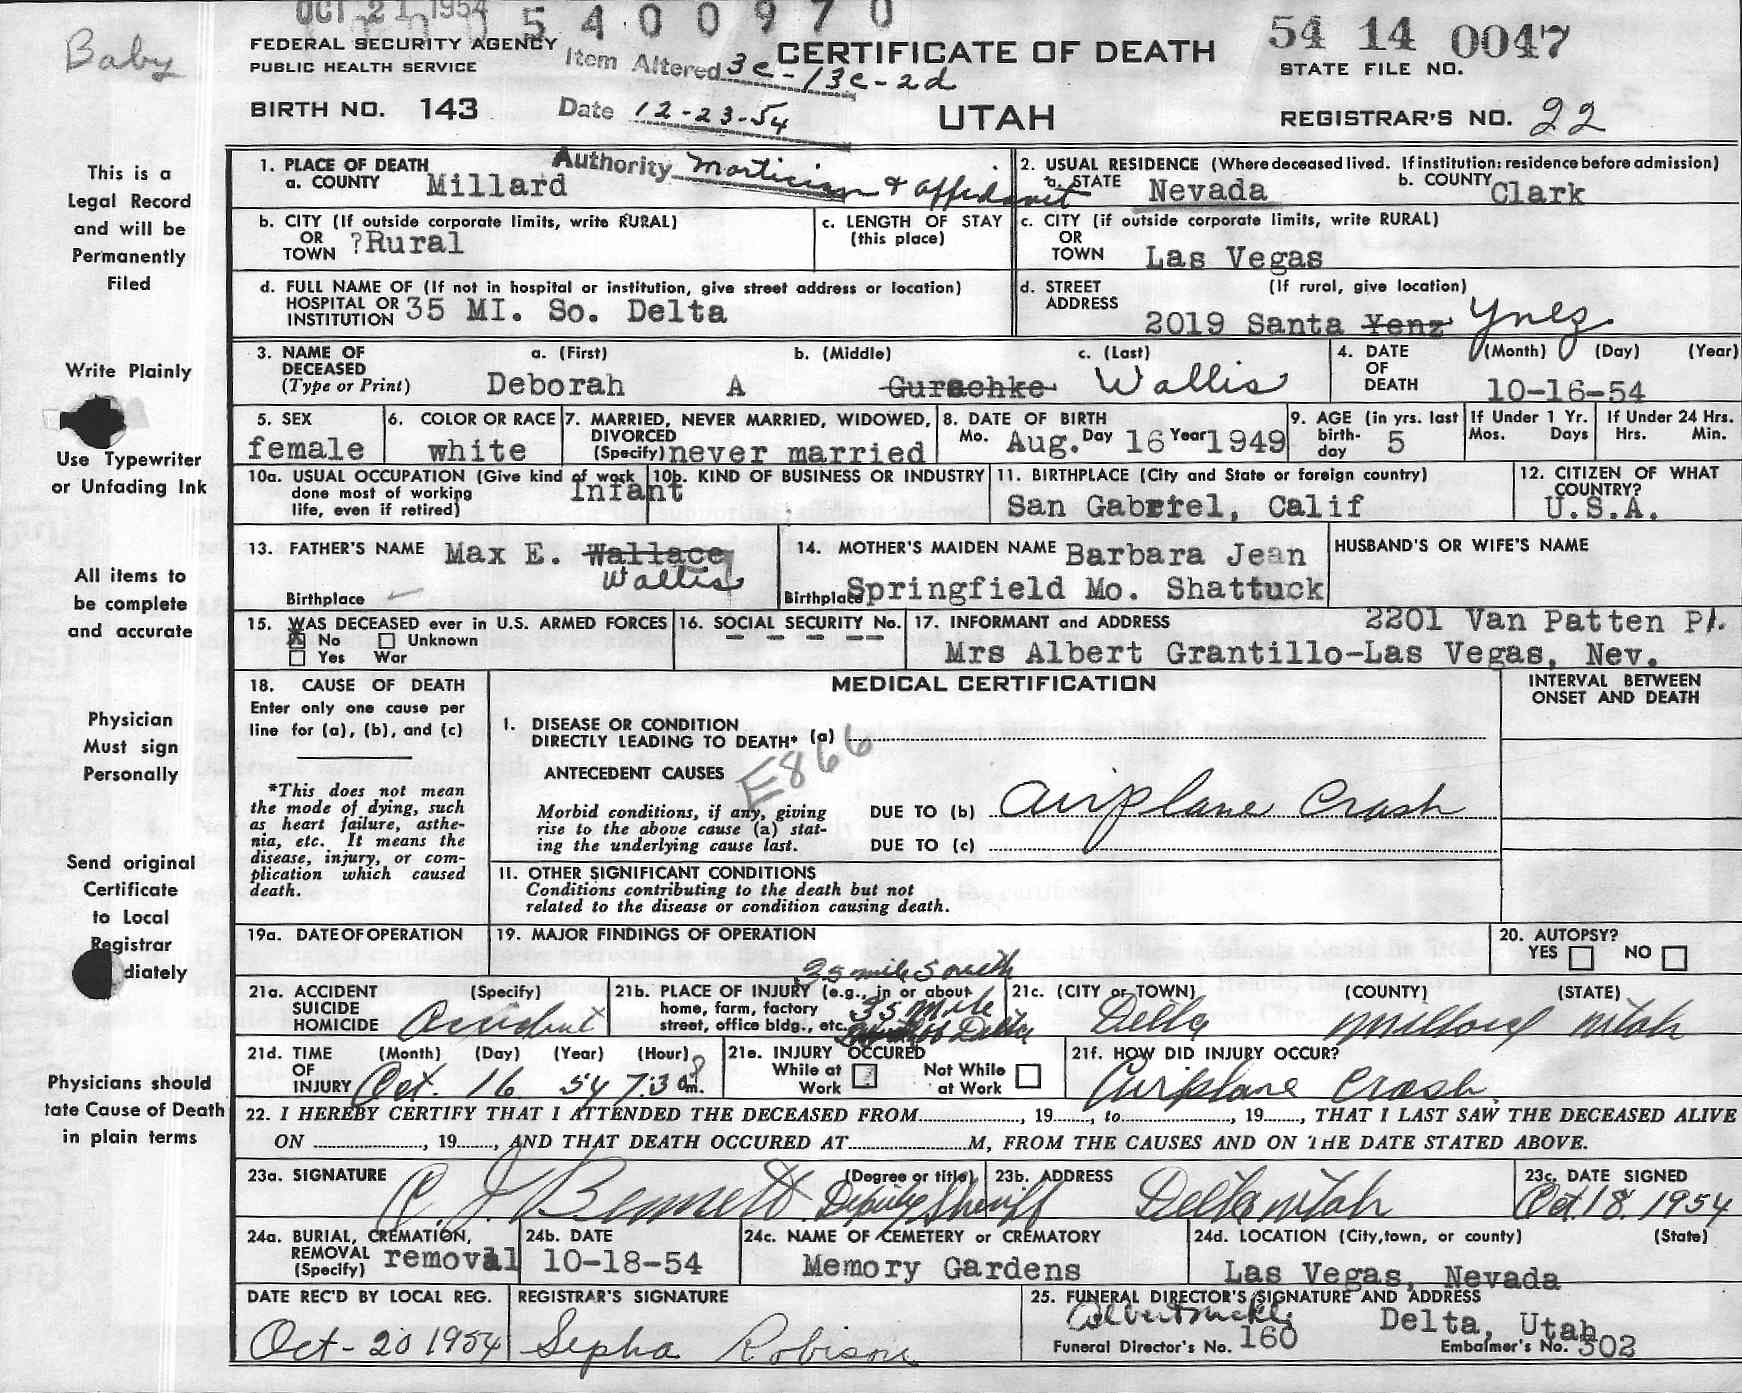 OCT 21 1954 5400970
Baby
FEDERAL SECURITY AGENCY
PUBLIC HEALTH SERVICE
Item Altered 3c-13c-2d
CERTIFICATE OF DEATH
54 14 0047
STATE FILE NO.
BIRTH NO. 143
Date 12-23-54
UTAH
REGISTRAR'S NO. 22
Authority Mortician & affidavit
This is a
Legal Record
and will be
Permanently
Filed
1. PLACE OF DEATH
a. COUNTY Millard
2. USUAL RESIDENCE (Where deceased lived. If institution: residence before admission)
a. STATE Nevada b. COUNTY Clark
b. CITY (If outside corporate limits, write RURAL)
OR
TOWN ?Rural
c. LENGTH OF STAY
(this place)
c. CITY (if outside corporate limits, write RURAL)
OR
TOWN Las Vegas
d. FULL NAME OF (If not in hospital or institution, give street address or location)
HOSPITAL OR
INSTITUTION 35 MI. So. Delta
d. STREET (If rural, give location)
ADDRESS
2019 Santa Yenz Ynez
Write Plainly
3. NAME OF DECEASED
(Type or Print)
a. (First) b. (Middle) c. (Last)
Deborah A Guraehke Wallis
4. DATE OF DEATH (Month) (Day) (Year)
10-16-54
Use Typewriter
or Unfading Ink
5. SEX
female
6. COLOR OR RACE
white
7. MARRIED, NEVER MARRIED, WIDOWED,
DIVORCED
(Specify) never married
8. DATE OF BIRTH
Mo. Aug. Day 16 Year 1949
9. AGE (in yrs. last
birth-
day 5
If Under 1 Yr.
Mos. Days
If Under 24 Hrs.
Hrs. Min.
10a. USUAL OCCUPATION (Give kind of work
done most of working
life, even if retired)
Infant
10b. KIND OF BUSINESS OR INDUSTRY
11. BIRTHPLACE (City and State or foreign country)
San Gabriel, Calif
12. CITIZEN OF WHAT
COUNTRY?
U.S.A.
All items to
be complete
and accurate
13. FATHER'S NAME Max E. Wallace
Wallis
Birthplace
14. MOTHER'S MAIDEN NAME Barbara Jean
Birthplace Springfield Mo. Shattuck
HUSBAND'S OR WIFE'S NAME
15. WAS DECEASED ever in U.S. ARMED FORCES
X No Unknown
Yes War
16. SOCIAL SECURITY No.
- - - - -
17. INFORMANT and ADDRESS 2201 Van Patten Pl.
Mrs Albert Grantillo-Las Vegas, Nev.
Physician
Must sign
Personally
18. CAUSE OF DEATH
Enter only one cause per
line for (a), (b), and (c)
*This does not mean
the mode of dying, such
as heart failure, asthe-
nia, etc. It means the
disease, injury, or com-
plication which caused
death.
MEDICAL CERTIFICATION
INTERVAL BETWEEN
ONSET AND DEATH
I. DISEASE OR CONDITION
DIRECTLY LEADING TO DEATH* (a)
E866
ANTECEDENT CAUSES
Morbid conditions, if any, giving
rise to the above cause (a) stat-
ing the underlying cause last.
DUE TO (b) Airplane Crash
DUE TO (c)
II. OTHER SIGNIFICANT CONDITIONS
Conditions contributing to the death but not
related to the disease or condition causing death.
Send original
Certificate
to Local
Registrar
diately
19a. DATE OF OPERATION
19. MAJOR FINDINGS OF OPERATION
20. AUTOPSY?
YES NO
21a. ACCIDENT (Specify)
SUICIDE
HOMICIDE Accident
21b. PLACE OF INJURY (e.g., in or about
home, farm, factory
street, office bldg., etc.
35 mile South
35 Mile
Delta
21c. (CITY or TOWN) (COUNTY) (STATE)
Delta Millard Utah
21d. TIME (Month) (Day) (Year) (Hour)
OF
INJURY Oct. 16 54 7:30 m.
21e. INJURY OCCURED
While at
Work
Not While
at Work
21f. HOW DID INJURY OCCUR?
Airplane Crash.
Physicians should
tate Cause of Death
in plain terms
22. I HEREBY CERTIFY THAT I ATTENDED THE DECEASED FROM, 19, to, 19, THAT I LAST SAW THE DECEASED ALIVE
ON, 19, AND THAT DEATH OCCURED AT M, FROM THE CAUSES AND ON THE DATE STATED ABOVE.
23a. SIGNATURE (Degree or title)
C. J. Bennett Deputy Sheriff
23b. ADDRESS
Delta Utah
23c. DATE SIGNED
Oct. 18. 1954
24a. BURIAL, CREMATION,
REMOVAL
(Specify) removal
24b. DATE
10-18-54
24c. NAME OF CEMETERY or CREMATORY
Memory Gardens
24d. LOCATION (City, town, or county) (State)
Las Vegas, Nevada
DATE REC'D BY LOCAL REG.
Oct-20 1954
REGISTRAR'S SIGNATURE
Sepha Robison
25. FUNERAL DIRECTOR'S SIGNATURE AND ADDRESS
Delta, Utah
Funeral Director's No. 160
Embalmer's No. 302